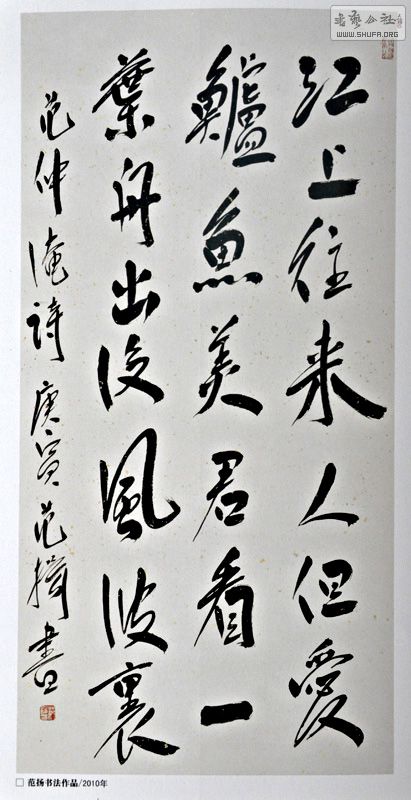 江上往来人但愛
鱸魚美君看一
葉舟出没風波裏
范仲淹詩庚寅范揚書
書藝公社
WWW.SHUFA.ORG
□ 范扬书法作品/2010年